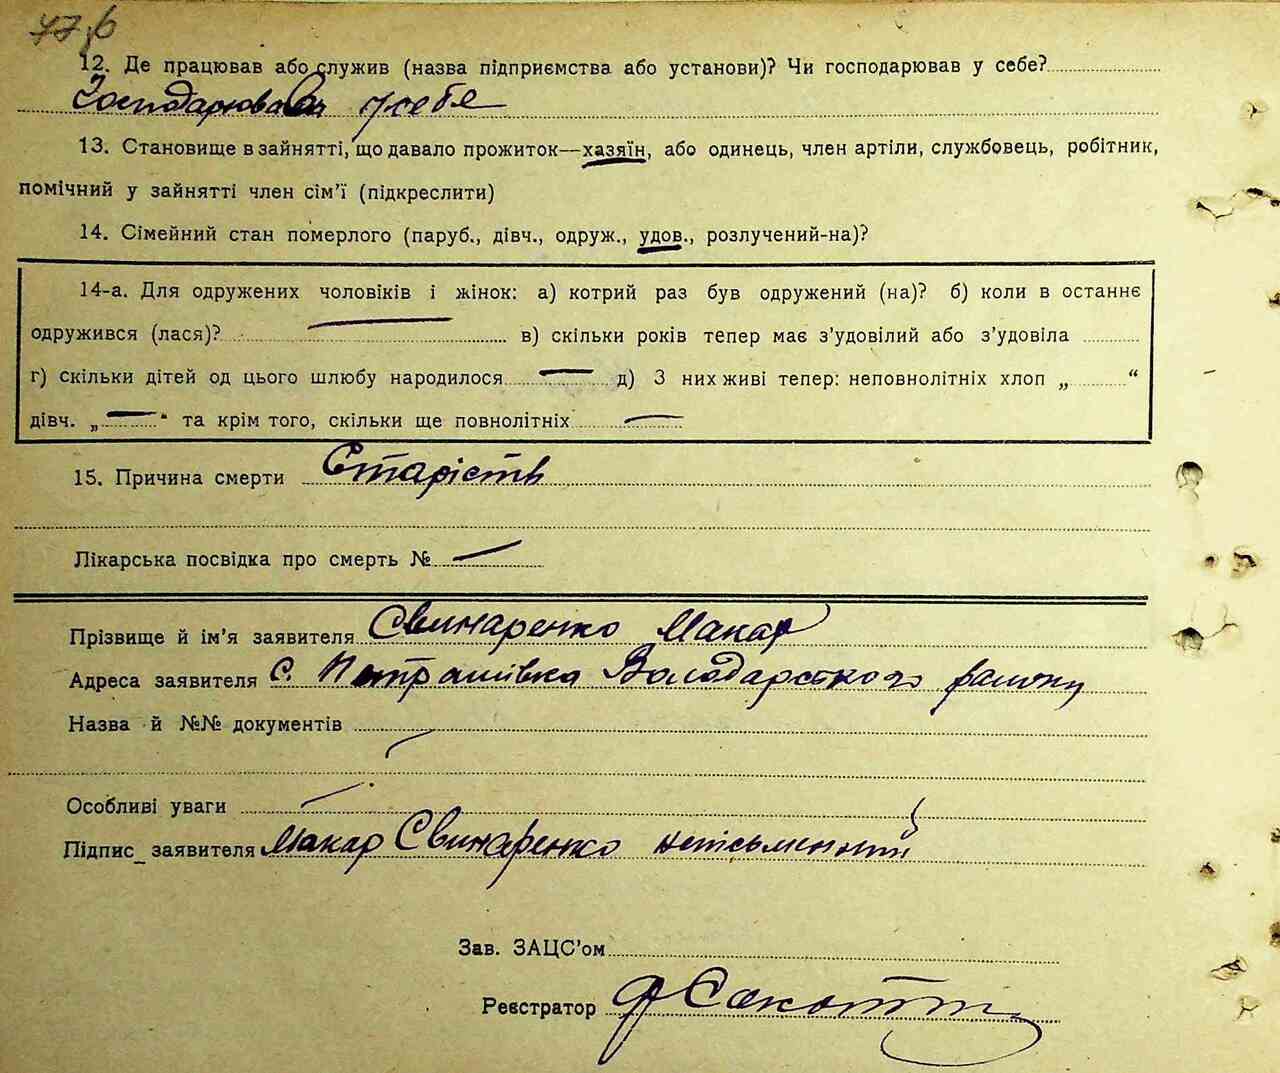 12. Де працював або служив (назва підприємства або установи)? Чи господарював у себе?
Господарював у себе
13. Становище в зайнятті, що давало прожиток—хазяїн, або одинець, член артіли, службовець, робітник,
помічний у зайнятті член сім'ї (підкреслити)
14. Сімейний стан померлого (паруб., дівч., одруж., удов., розлучений-на)?
14-а. Для одружених чоловіків і жінок: а) котрий раз був одружений (на)? б) коли в останнє
одружився (лася)? в) скільки років тепер має з'удовілий або з'удовіла
г) скільки дітей од цього шлюбу народилося — д) З них живі тепер: неповнолітніх хлоп „ “
дівч. „ — “ та крім того, скільки ще повнолітніх —
15. Причина смерти Старість
Лікарська посвідка про смерть № —
Прізвище й ім'я заявителя Свинаренко Макар
Адреса заявителя с. Петрашівка Володарського району
Назва й №№ документів
Особливі уваги
Підпис заявителя Макар Свинаренко неписьменний
Зав. ЗАЦС'ом
Реєстратор